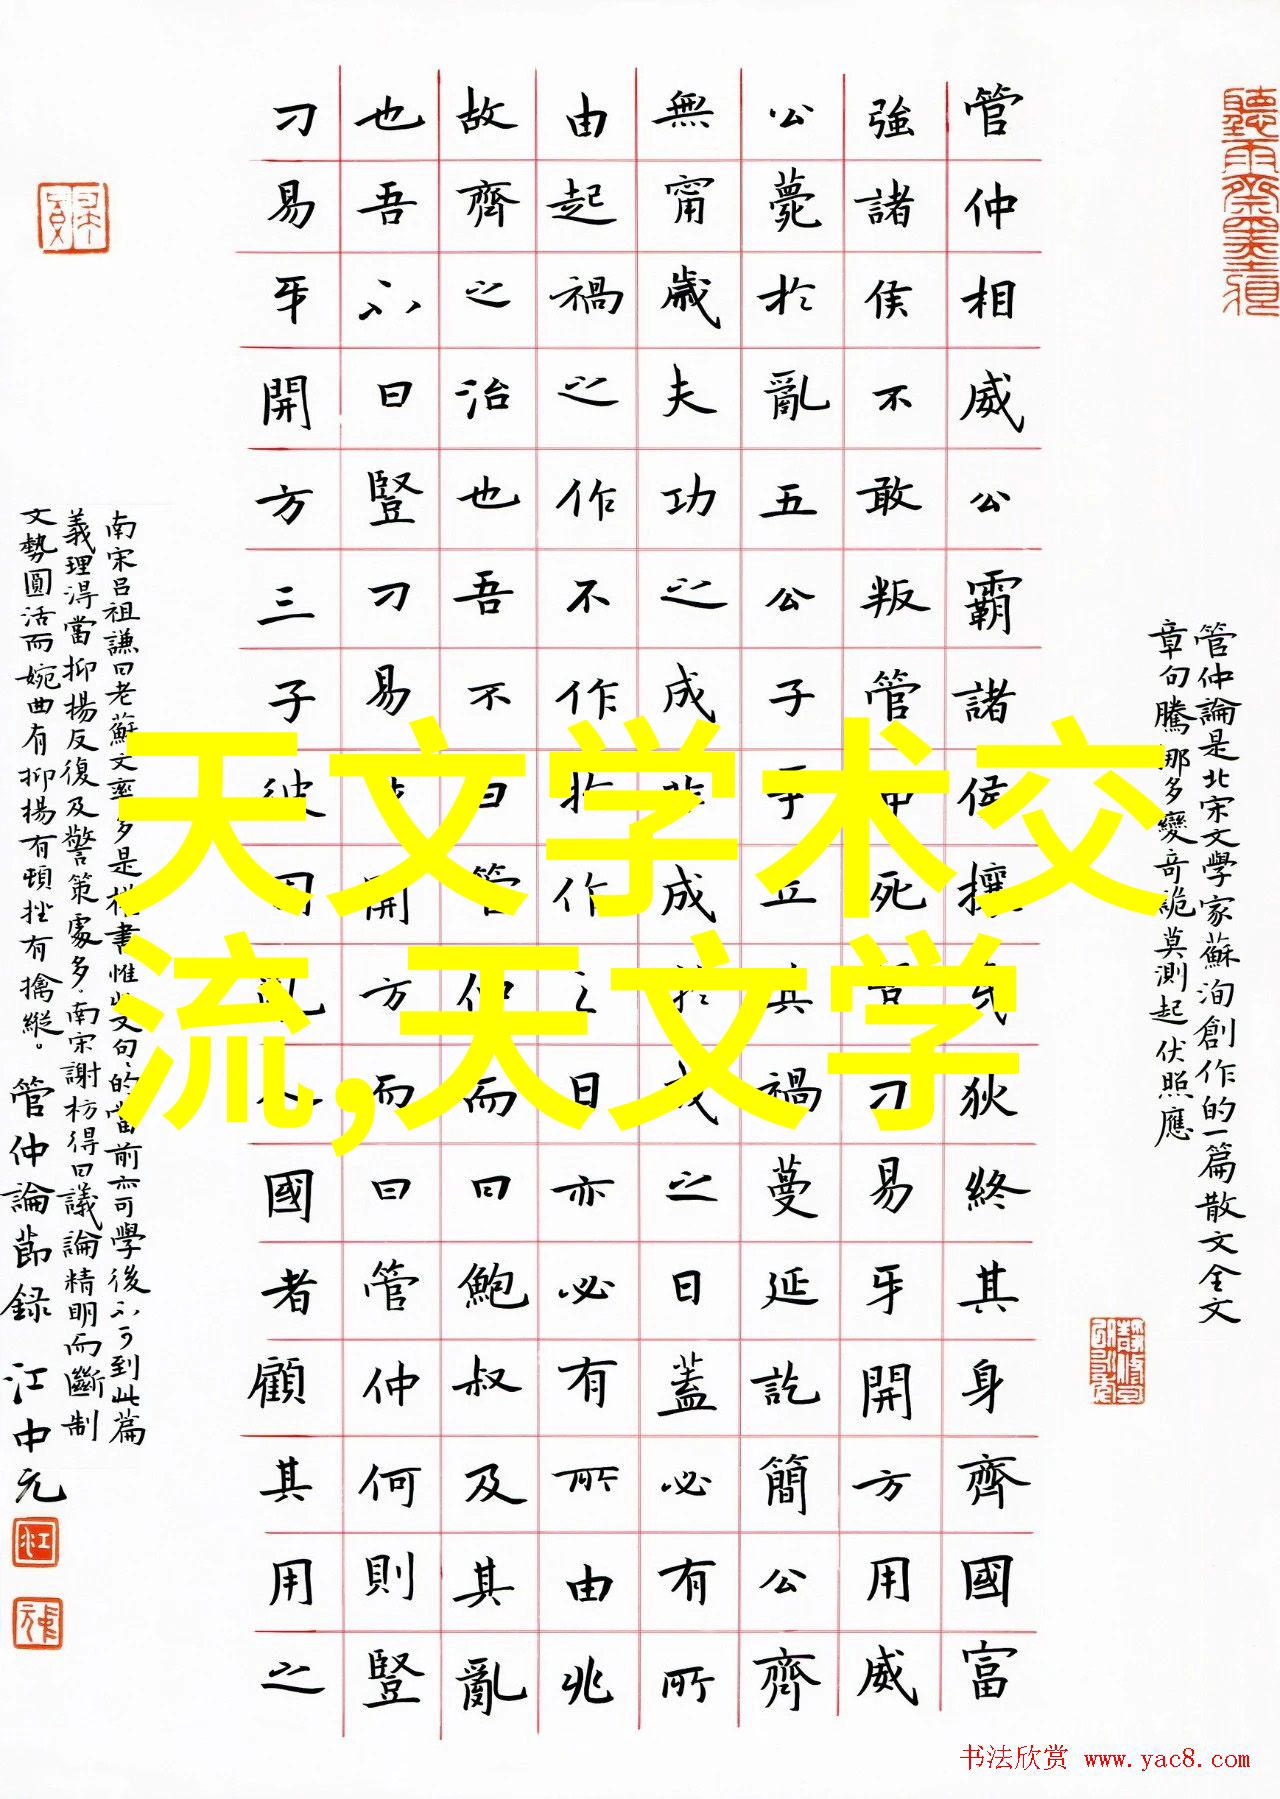 管仲論是北宋文學家蘇洵創作的一篇散文全文
章句騰那多變奇詭莫測起伏照應
管仲相威公霸諸侯攘戎狄終其身齊國富
強諸侯不敢叛管仲死豎刁易牙開方用威
公薨於亂五公子爭立其禍蔓延訖簡公齊
無甯歲夫功之成非成於成之日蓋必有所
由起禍之作不作於作之日亦必有所由兆
故齊之治也吾不曰管仲而曰鮑叔及其亂
也吾不曰豎刁易牙開方而曰管仲何則豎
刁易牙開方三子彼固亂人國者顧其用之
南宋呂祖謙曰老蘇文率多是權書惟此文句的當前亦可學後不可到此篇
義理得當抑揚反復及警策處多南宋謝枋得曰議論精明而斷制
文勢圓活而婉曲有抑揚有頓挫有擒縱。管仲論節録 江中元
天文学术交
流,天文学
书法欣赏 www.yac8.com